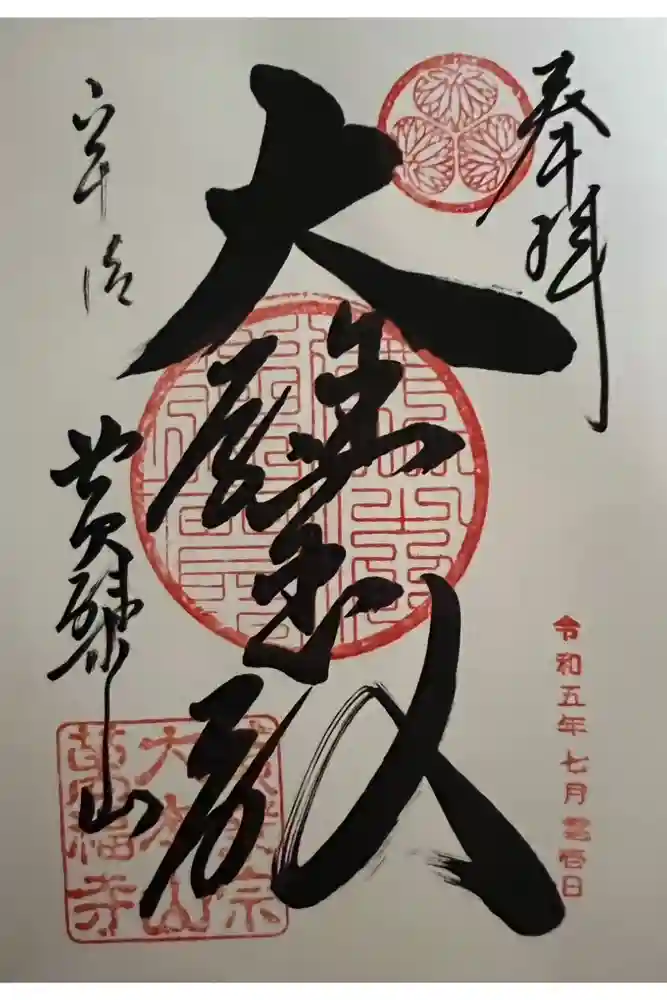 奉拝
大雄宝殿
宇治
黄檗山
令和五年七月零壱日
黄檗宗
大本山
萬福寺